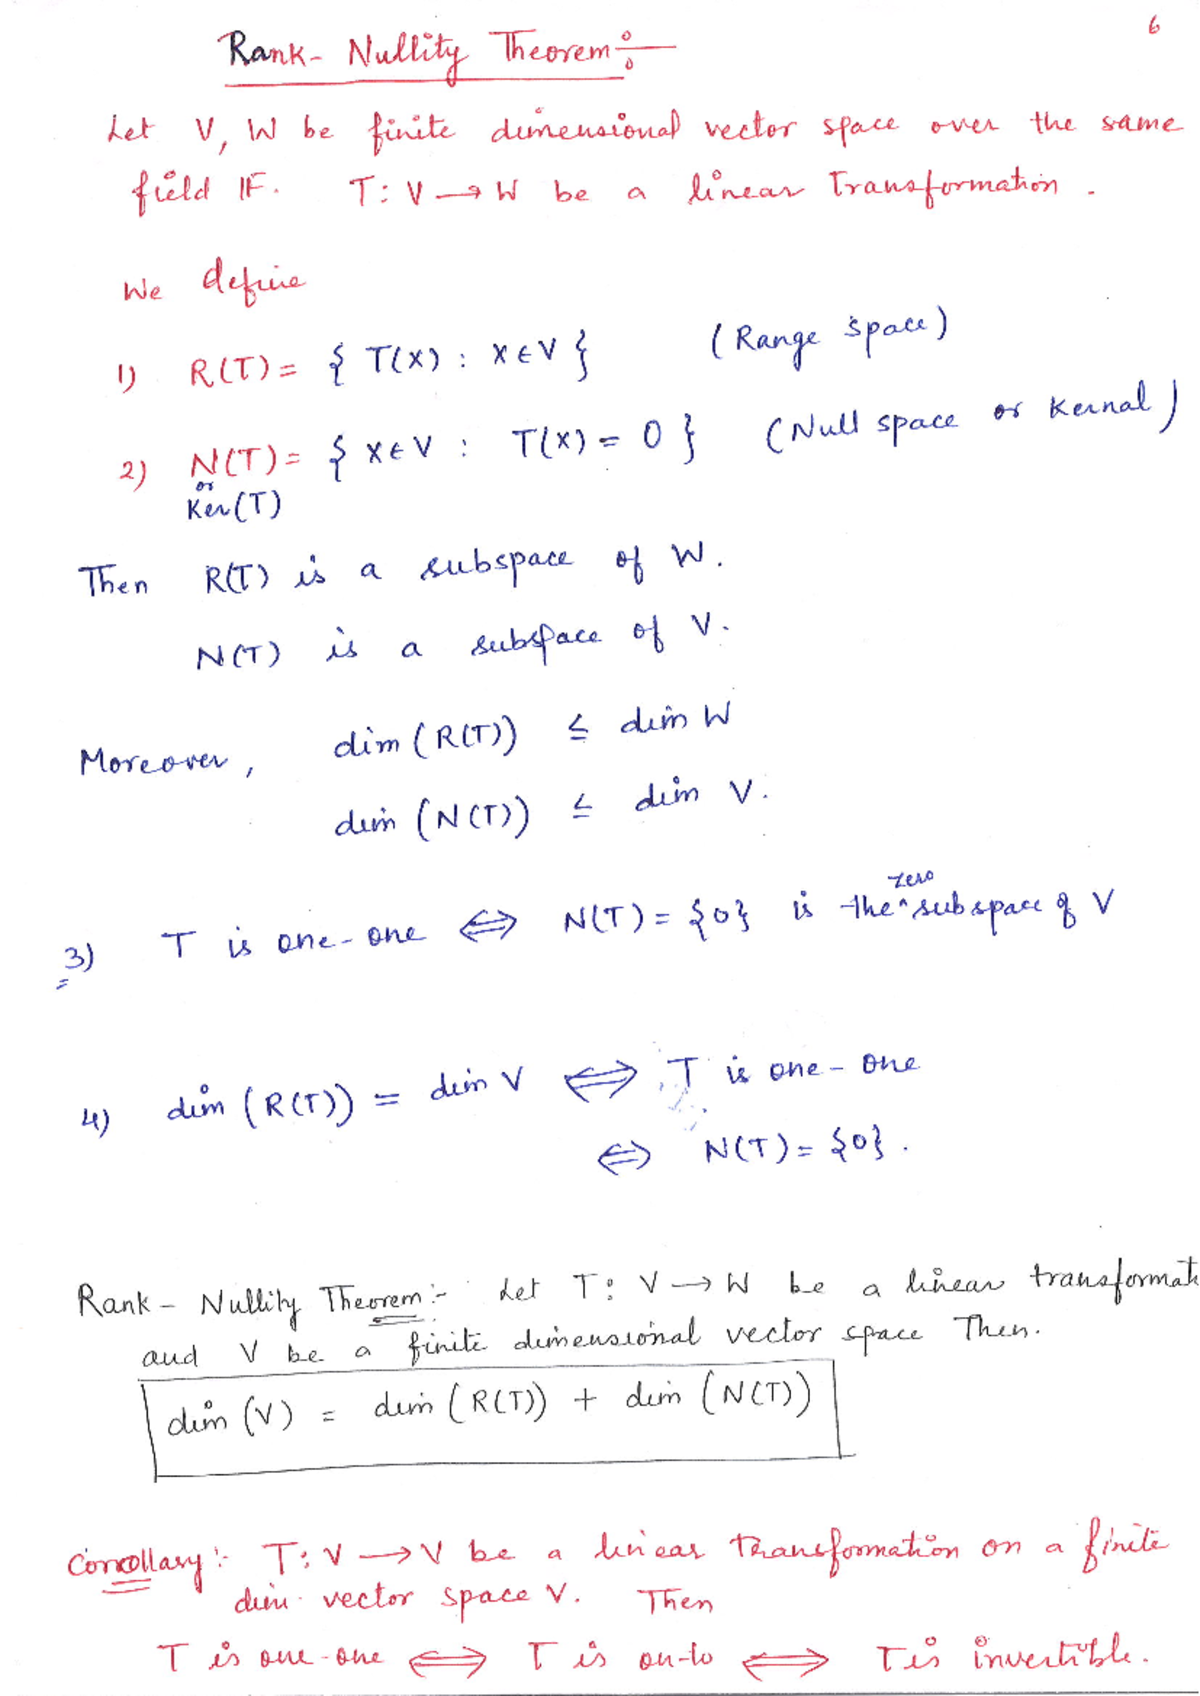 6
Rank- Nullity Theorem:-
Let V, W be finite dimensional vector space over the same
field IF. T: V → W be a linear Transformation.
We define
1) R(T) = { T(x) : x ∈ V } (Range space)
2) N(T) = { x ∈ V : T(x) = 0 } (Null space or Kernal)
or
Ker(T)
Then R(T) is a subspace of W.
N(T) is a subspace of V.
Moreover, dim (R(T)) ≤ dim W
dim (N(T)) ≤ dim V.
3) T is one-one ⇔ N(T) = {0} is the ^zero subspace of V
4) dim (R(T)) = dim V ⇔ T is one-one
⇔ N(T) = {0}.
Rank - Nullity Theorem:- Let T: V → W be a linear transformat
and V be a finite dimensional vector space Then.
dim (V) = dim (R(T)) + dim (N(T))
Corollary:- T: V → V be a linear transformation on a finite
dim. vector space V. Then
T is one-one ⇔ T is on-to ⇔ T is invertible.